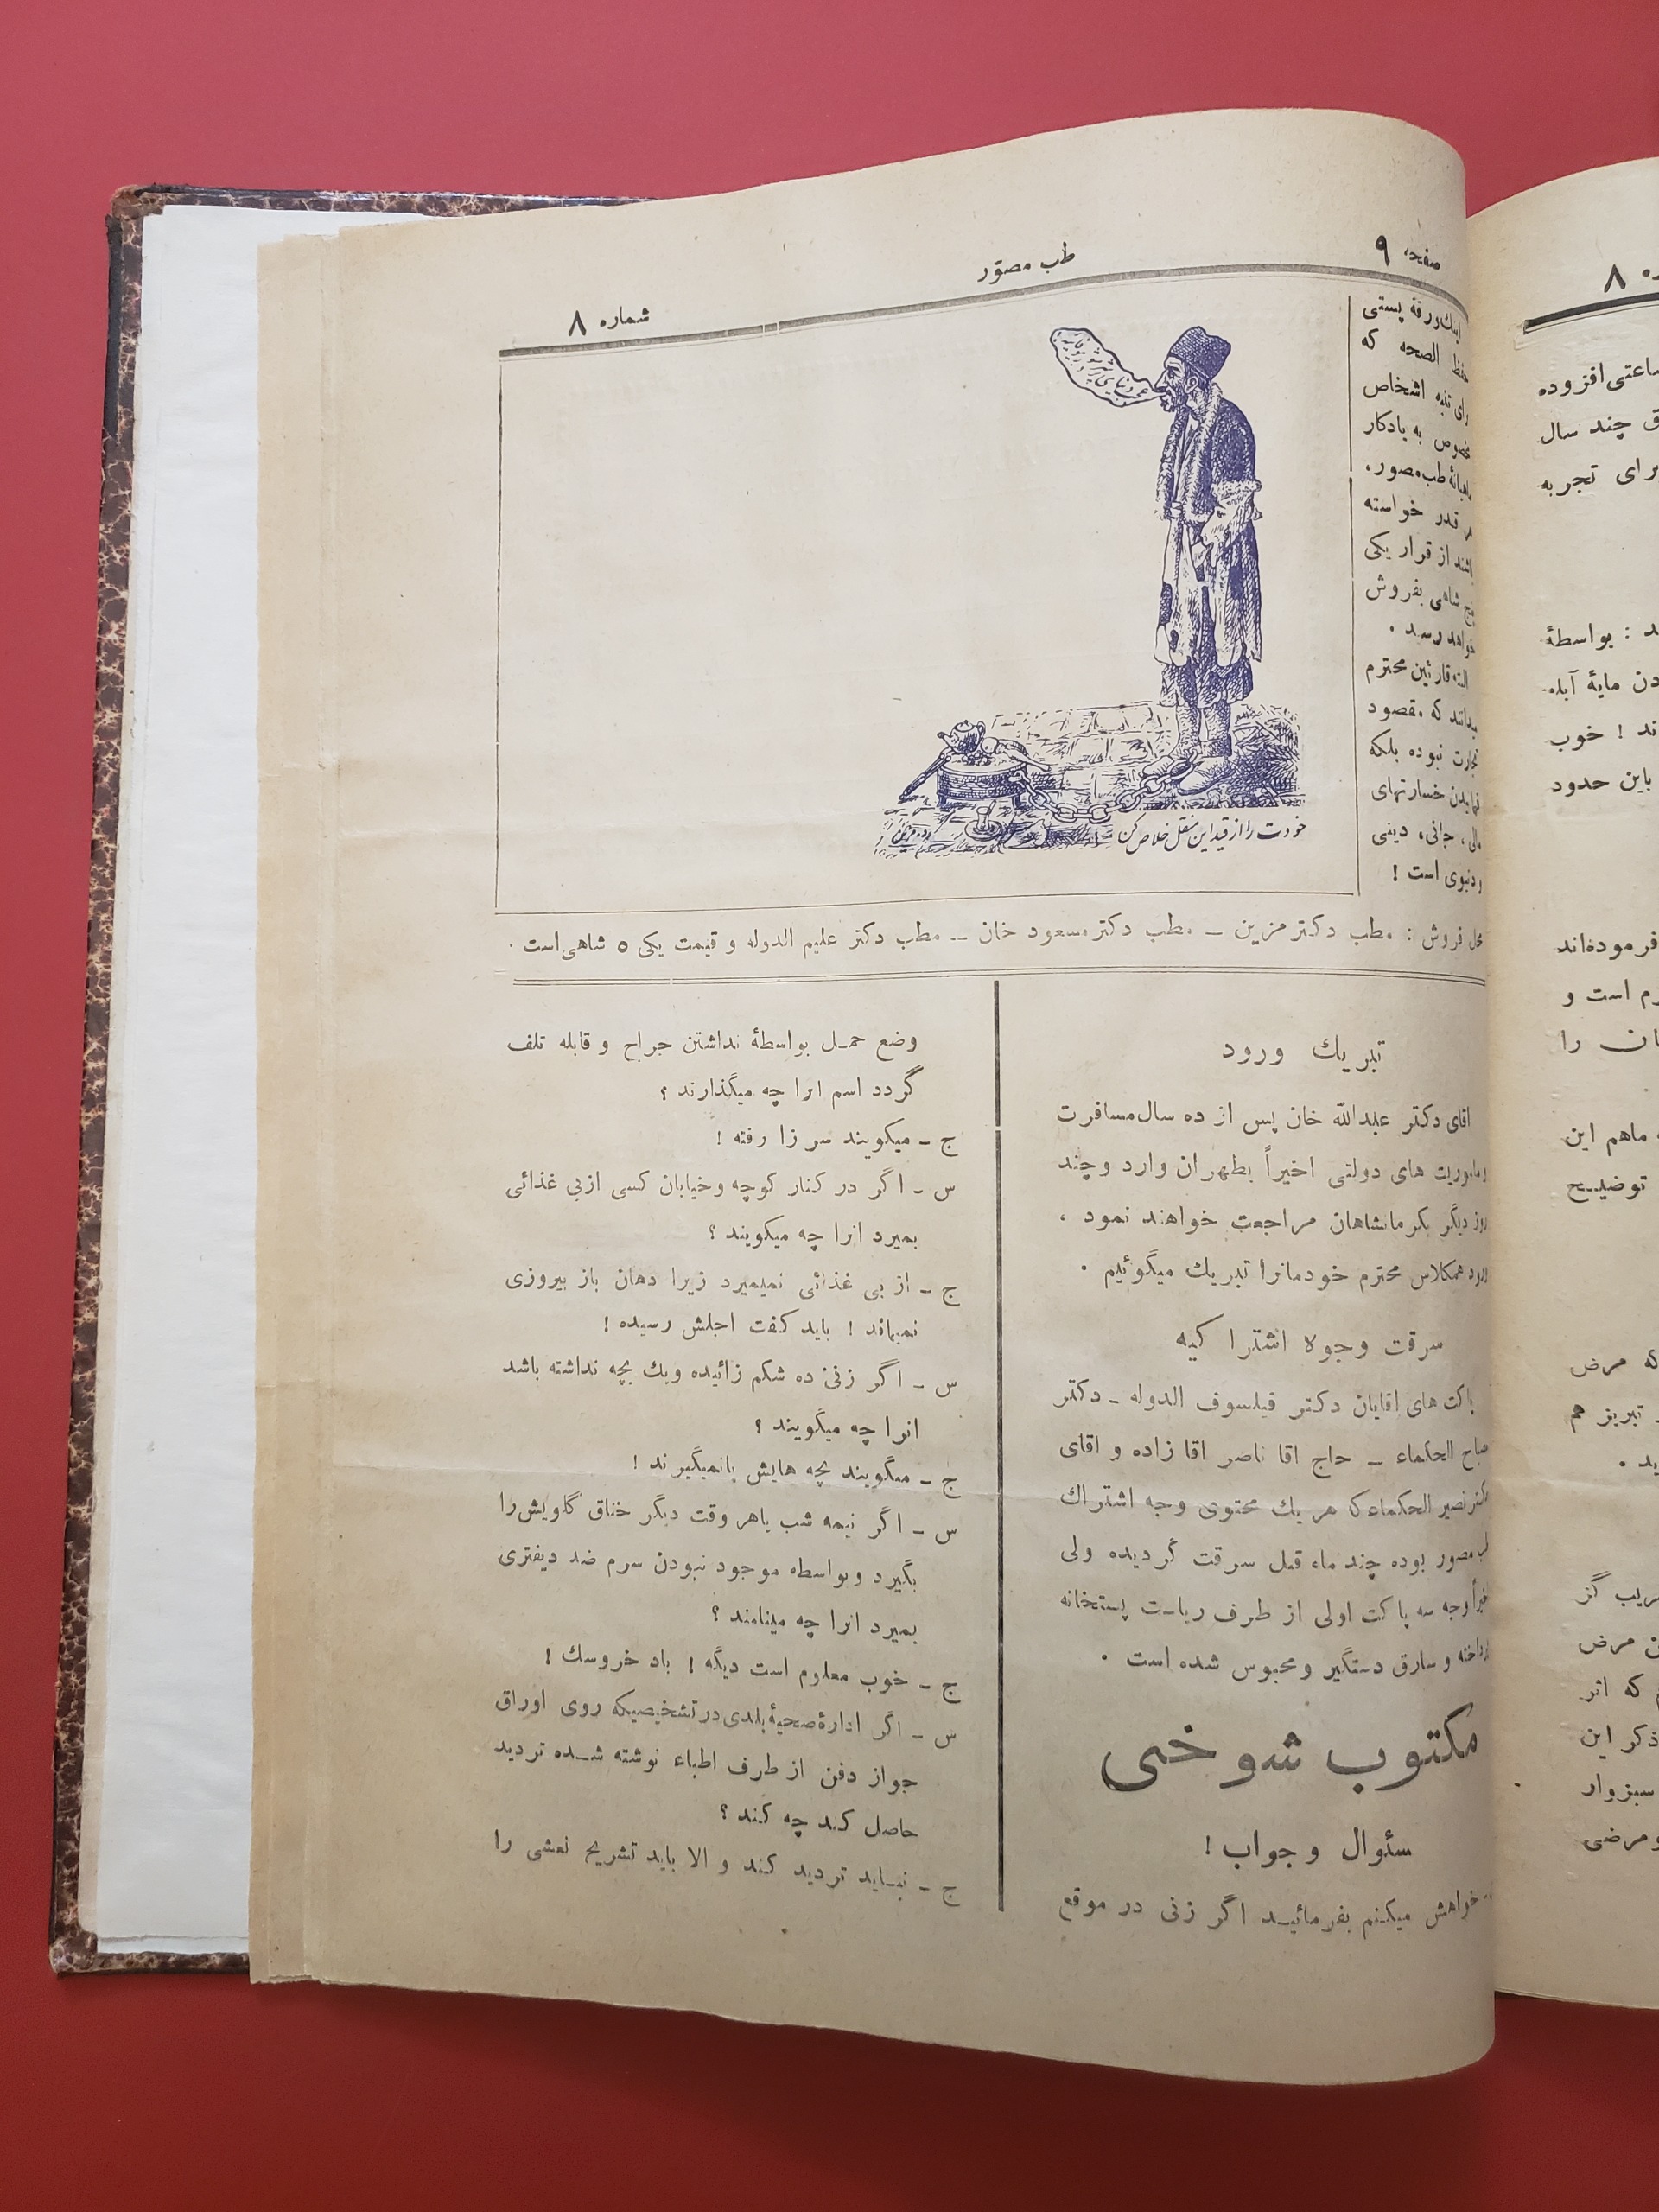 صفحه ۹
طب مصوّر
شماره ۸
اینك ورقۀ پستی
حفظ الصحه که
برای تنبه اشخاص
مخصوص به یادکار
ماهیانۀ طب مصور،
هر قدر خواسته
باشند از قرار یکی
پنج شاهی بفروش
خواهد رسید ۰
البته قارئین محترم
میدانند که مقصود
تجارت نبوده بلکه
نمایدن خسارتهای
مالی، جانی، دینی
و دنیوی است !
خودت را از قید این منقل خلاص کن
محل فروش : مطب دکتر مزین ــ مطب دکتر مسعود خان ــ مطب دکتر علیم الدوله و قیمت یکی ۵ شاهی است ۰
تبریك ورود
اقای دکتر عبدالله خان پس از ده سال مسافرت
و ماموریت های دولتی اخیراً بطهران وارد و چند
روز دیگر بکرمانشاهان مراجعت خواهند نمود ،
ورود همکلاس محترم خودمانرا تبریك میگوئیم ۰
سرقت وجوه اشتراکیه
پاکت های اقایان دکتر فیلسوف الدوله ـ دکتر
صباح الحکماء ــ حاج اقا ناصر اقا زاده و اقای
دکتر نصیر الحکماء که هر یك محتوی وجه اشتراك
طب مصور بوده چند ماه قبل سرقت گردیده ولی
اخیراً وجه سه پاکت اولی از طرف ریاست پستخانه
پرداخته و سارق دستگیر و محبوس شده است ۰
مکتوب شوخی
سئوال و جواب !
خواهش میکنم بفرمائید اگر زنی در موقع
وضع حمل بواسطۀ نداشتن جراح و قابله تلف
گردد اسم انرا چه میگذارند ؟
ج ــ میکویند سر زا رفته !
س ــ اگر در کنار کوچه و خیابان کسی از بی غذائی
بمیرد انرا چه میکویند ؟
ج ــ از بی غذائی نمیمیرد زیرا دهان باز بیروزی
نمیماند ! باید کفت اجلش رسیده !
س ــ اگر زنی ده شکم زائیده ویك بچه نداشته باشد
انرا چه میگویند ؟
ج ــ میگویند بچه هایش پا نمیگیرند !
س ــ اگر نیمه شب یا هر وقت دیگر خناق گلویش را
بگیرد و بواسطه موجود نبودن سرم ضد دیفتری
بمیرد انرا چه مینامند ؟
ج ــ خوب معلوم است دیگه ! باد خروسك !
س ــ اگر ادارۀ صحیۀ بلدی در تشخیصیکه روی اوراق
جواز دفن از طرف اطباء نوشته شده تردید
حاصل کند چه کند ؟
ج ــ نباید تردید کند و الا باید تشریح نعشی را
۸
ساعتی افزوده
چند سال
برای تجربه
بواسطۀ
مایۀ آبله
ند ! خوب
باین حدود
فرموده‌اند
است و
را
ماهم این
توضیح
که مرض
تبریز هم
گز
مرض
که اثر
ذکر این
سبزوار
ومرضی